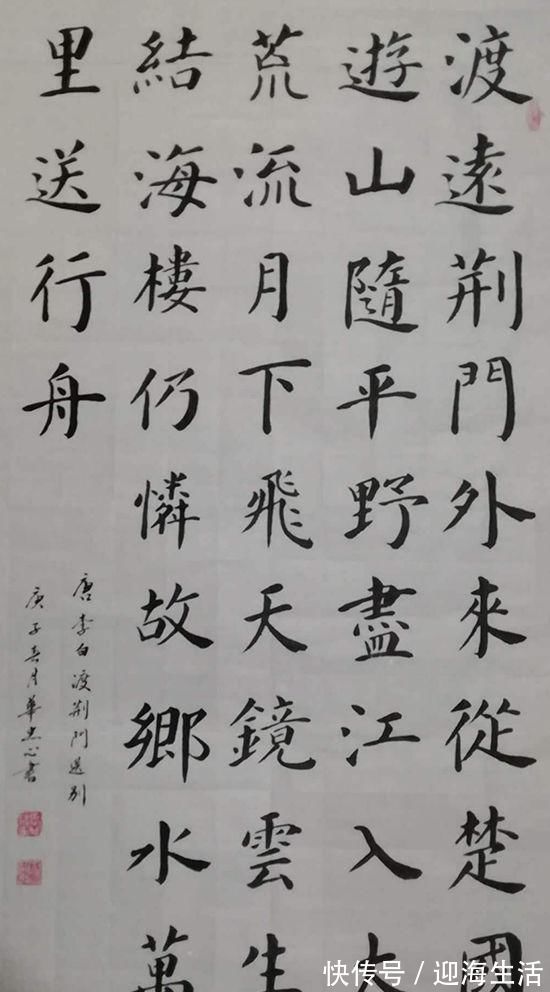 渡遠荆門外來從楚國
遊山隨平野盡江入大
荒流月下飛天鏡雲生
結海樓仍憐故鄉水萬
里送行舟
唐李白渡荆門送別
庚子春月華書
快传号 / 迎海生活